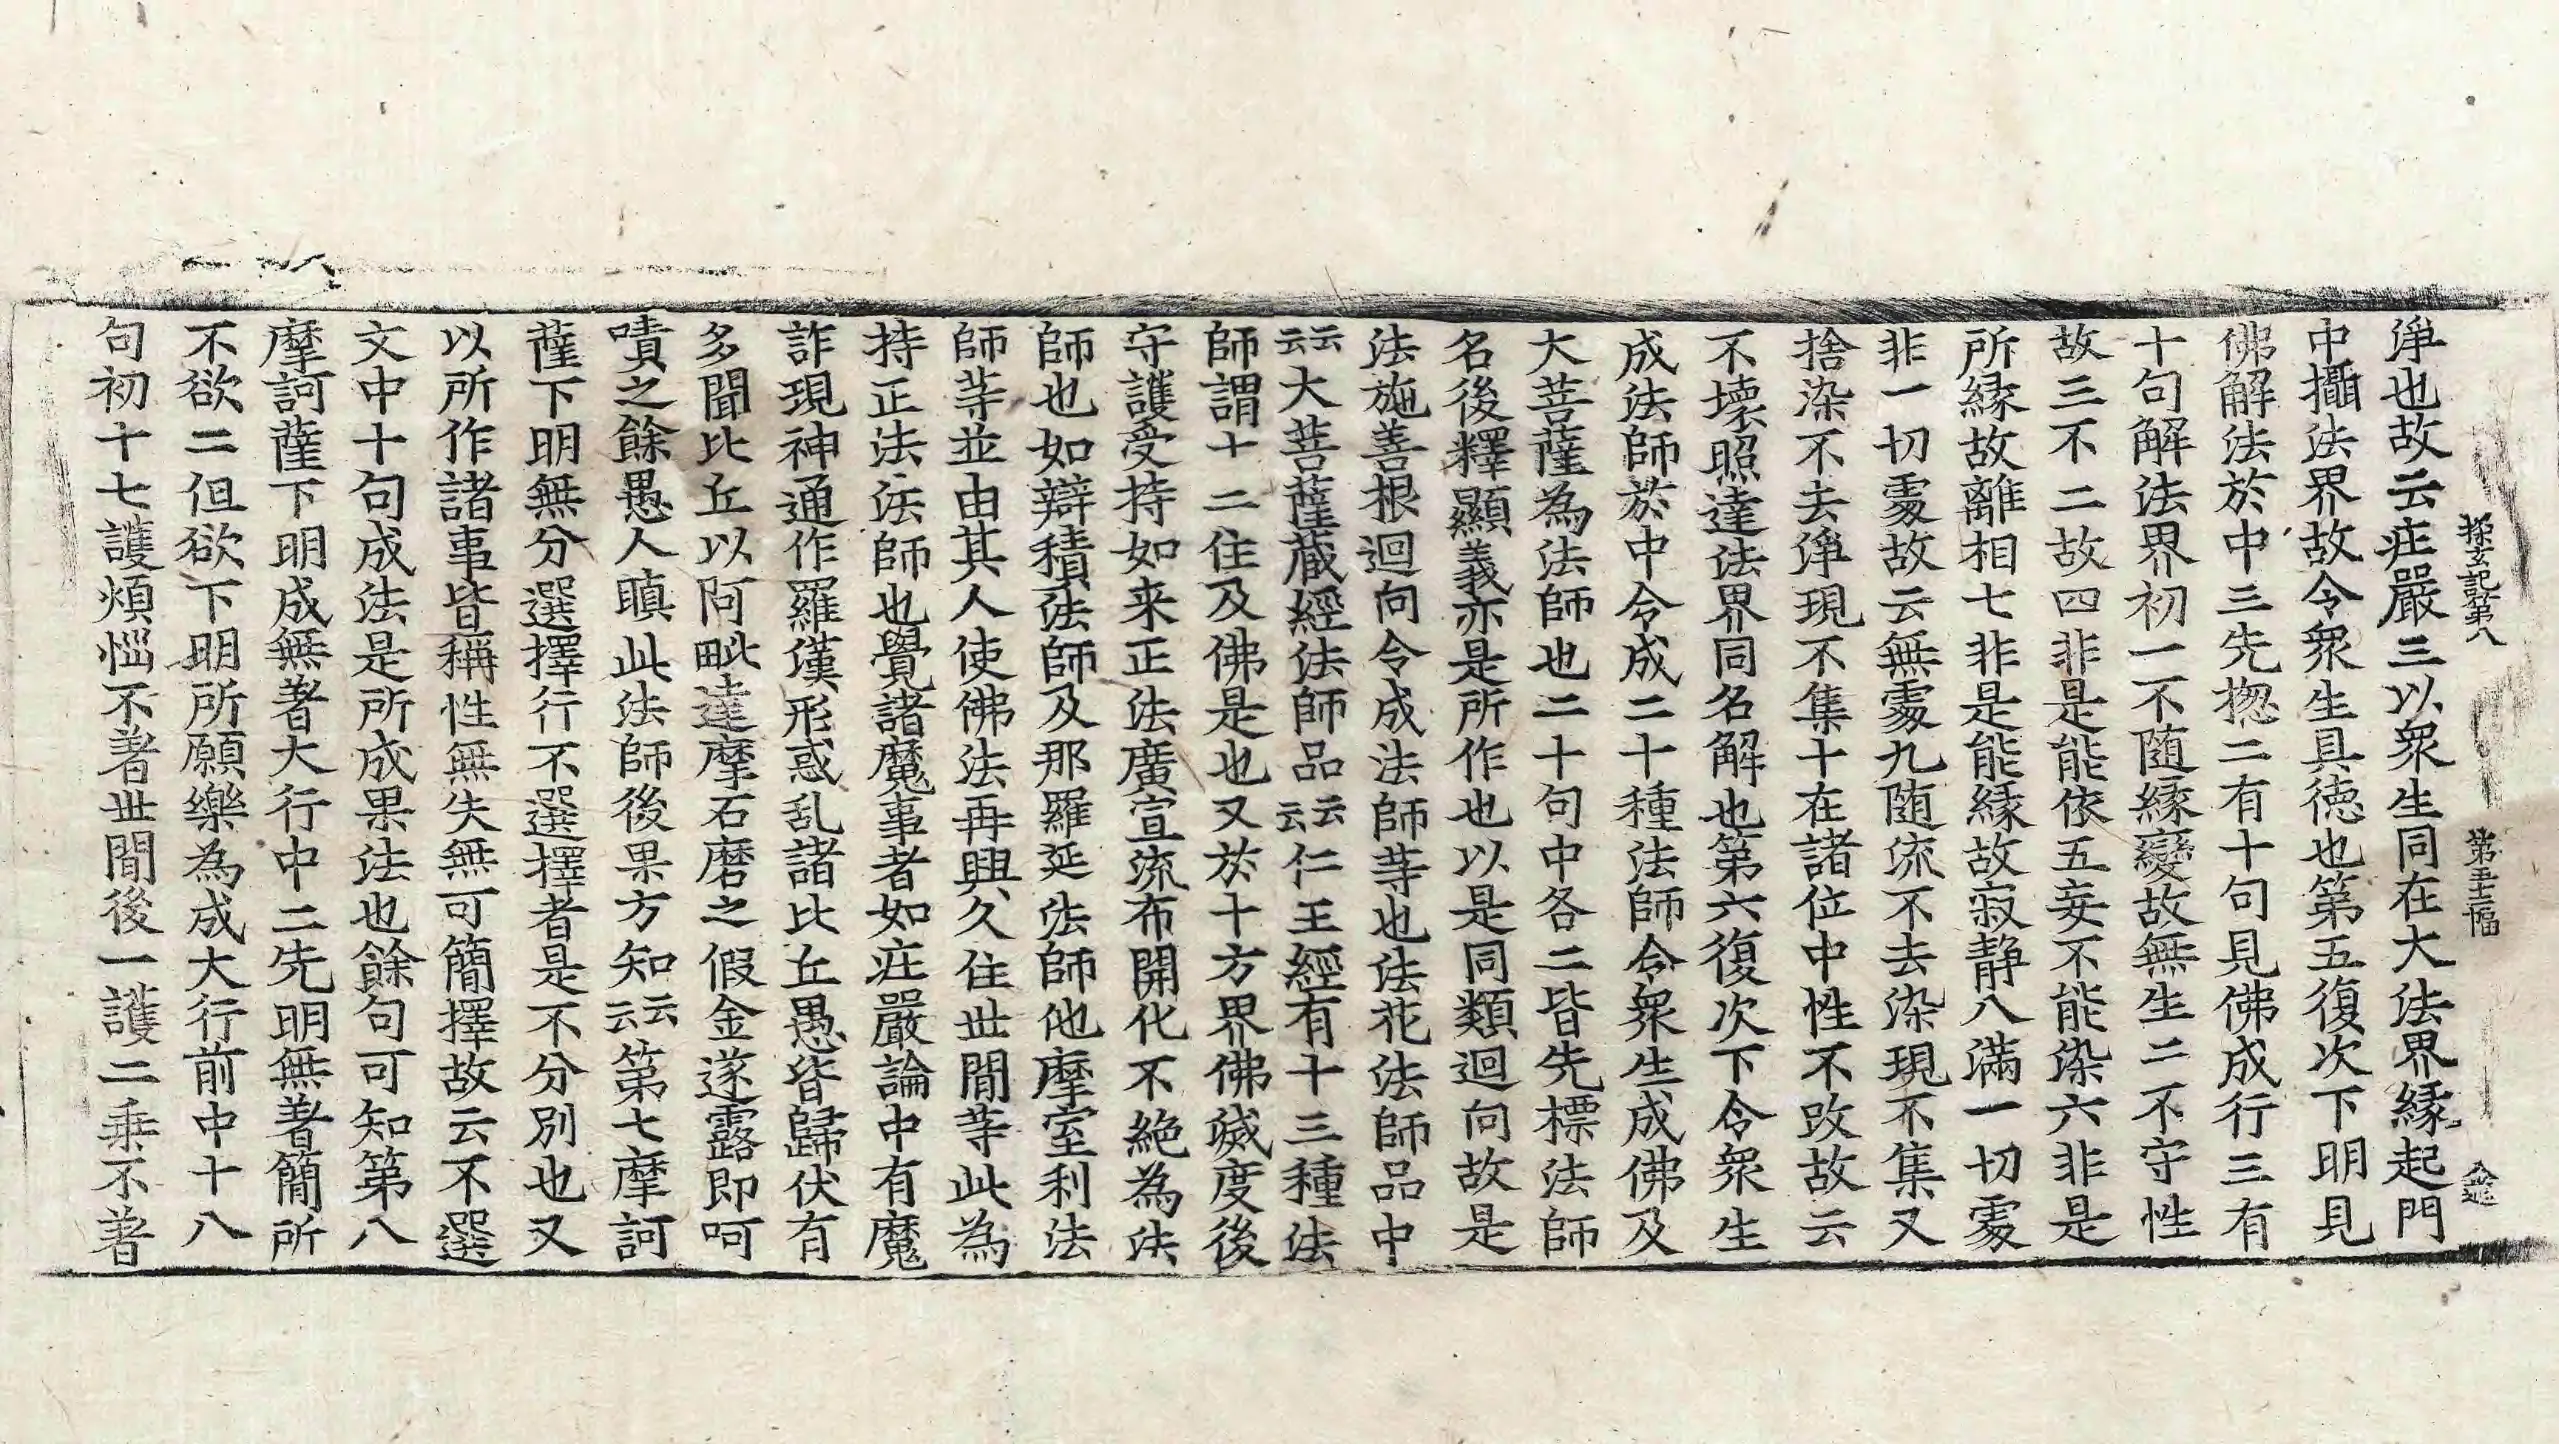 探玄記第八　第五十二幅
淨也故云庄嚴三以衆生同在大法界緣起門
中攝法界故令衆生具徳也第五復次下明見
佛解法於中三先揔二有十句見佛成行三有
十句解法界初一不随緣變故無生二不守性
故三不二故四非是能依五妄不能染六非是
所緣故離相七非是能緣故寂静八滿一切處
非一切處故云無處九随流不去染現不集又
捨染不去淨現不集十在諸位中性不改故云
不壊照達法界同名解也第六復次下令衆生
成法師於中令成二十種法師令衆生成佛及
大菩薩為法師也二十句中各二皆先標法師
名後釋顯義亦是所作也以是同類迴向故是
法施善根迴向令成法師䓁也法花法師品中
云云大菩薩蔵經法師品云云仁王經有十三種法
師謂十二住及佛是也又於十方界佛滅度後
守護受持如来正法廣宣流布開化不絶為法
師也如辯積法師及那羅延法師他摩室利法
師䓁並由其人使佛法再興久住世間䓁此為
持正法法師也覺諸魔事者如庄嚴論中有魔
詐現神通作羅漢形惑乱諸比丘愚皆歸伏有
多聞比丘以阿毗達摩石磨之假金遂露即呵
嘖之餘愚人瞋此法師後果方知云云第七摩訶
薩下明無分選擇行不選擇者是不分別也又
以所作諸事皆稱性無失無可簡擇故云不選
文中十句成法是所成果法也餘句可知第八
摩訶薩下明成無著大行中二先明無著簡所
不欲二但欲下明所願樂為成大行前中十八
句初十七護煩惱不著世間後一護二乗不著